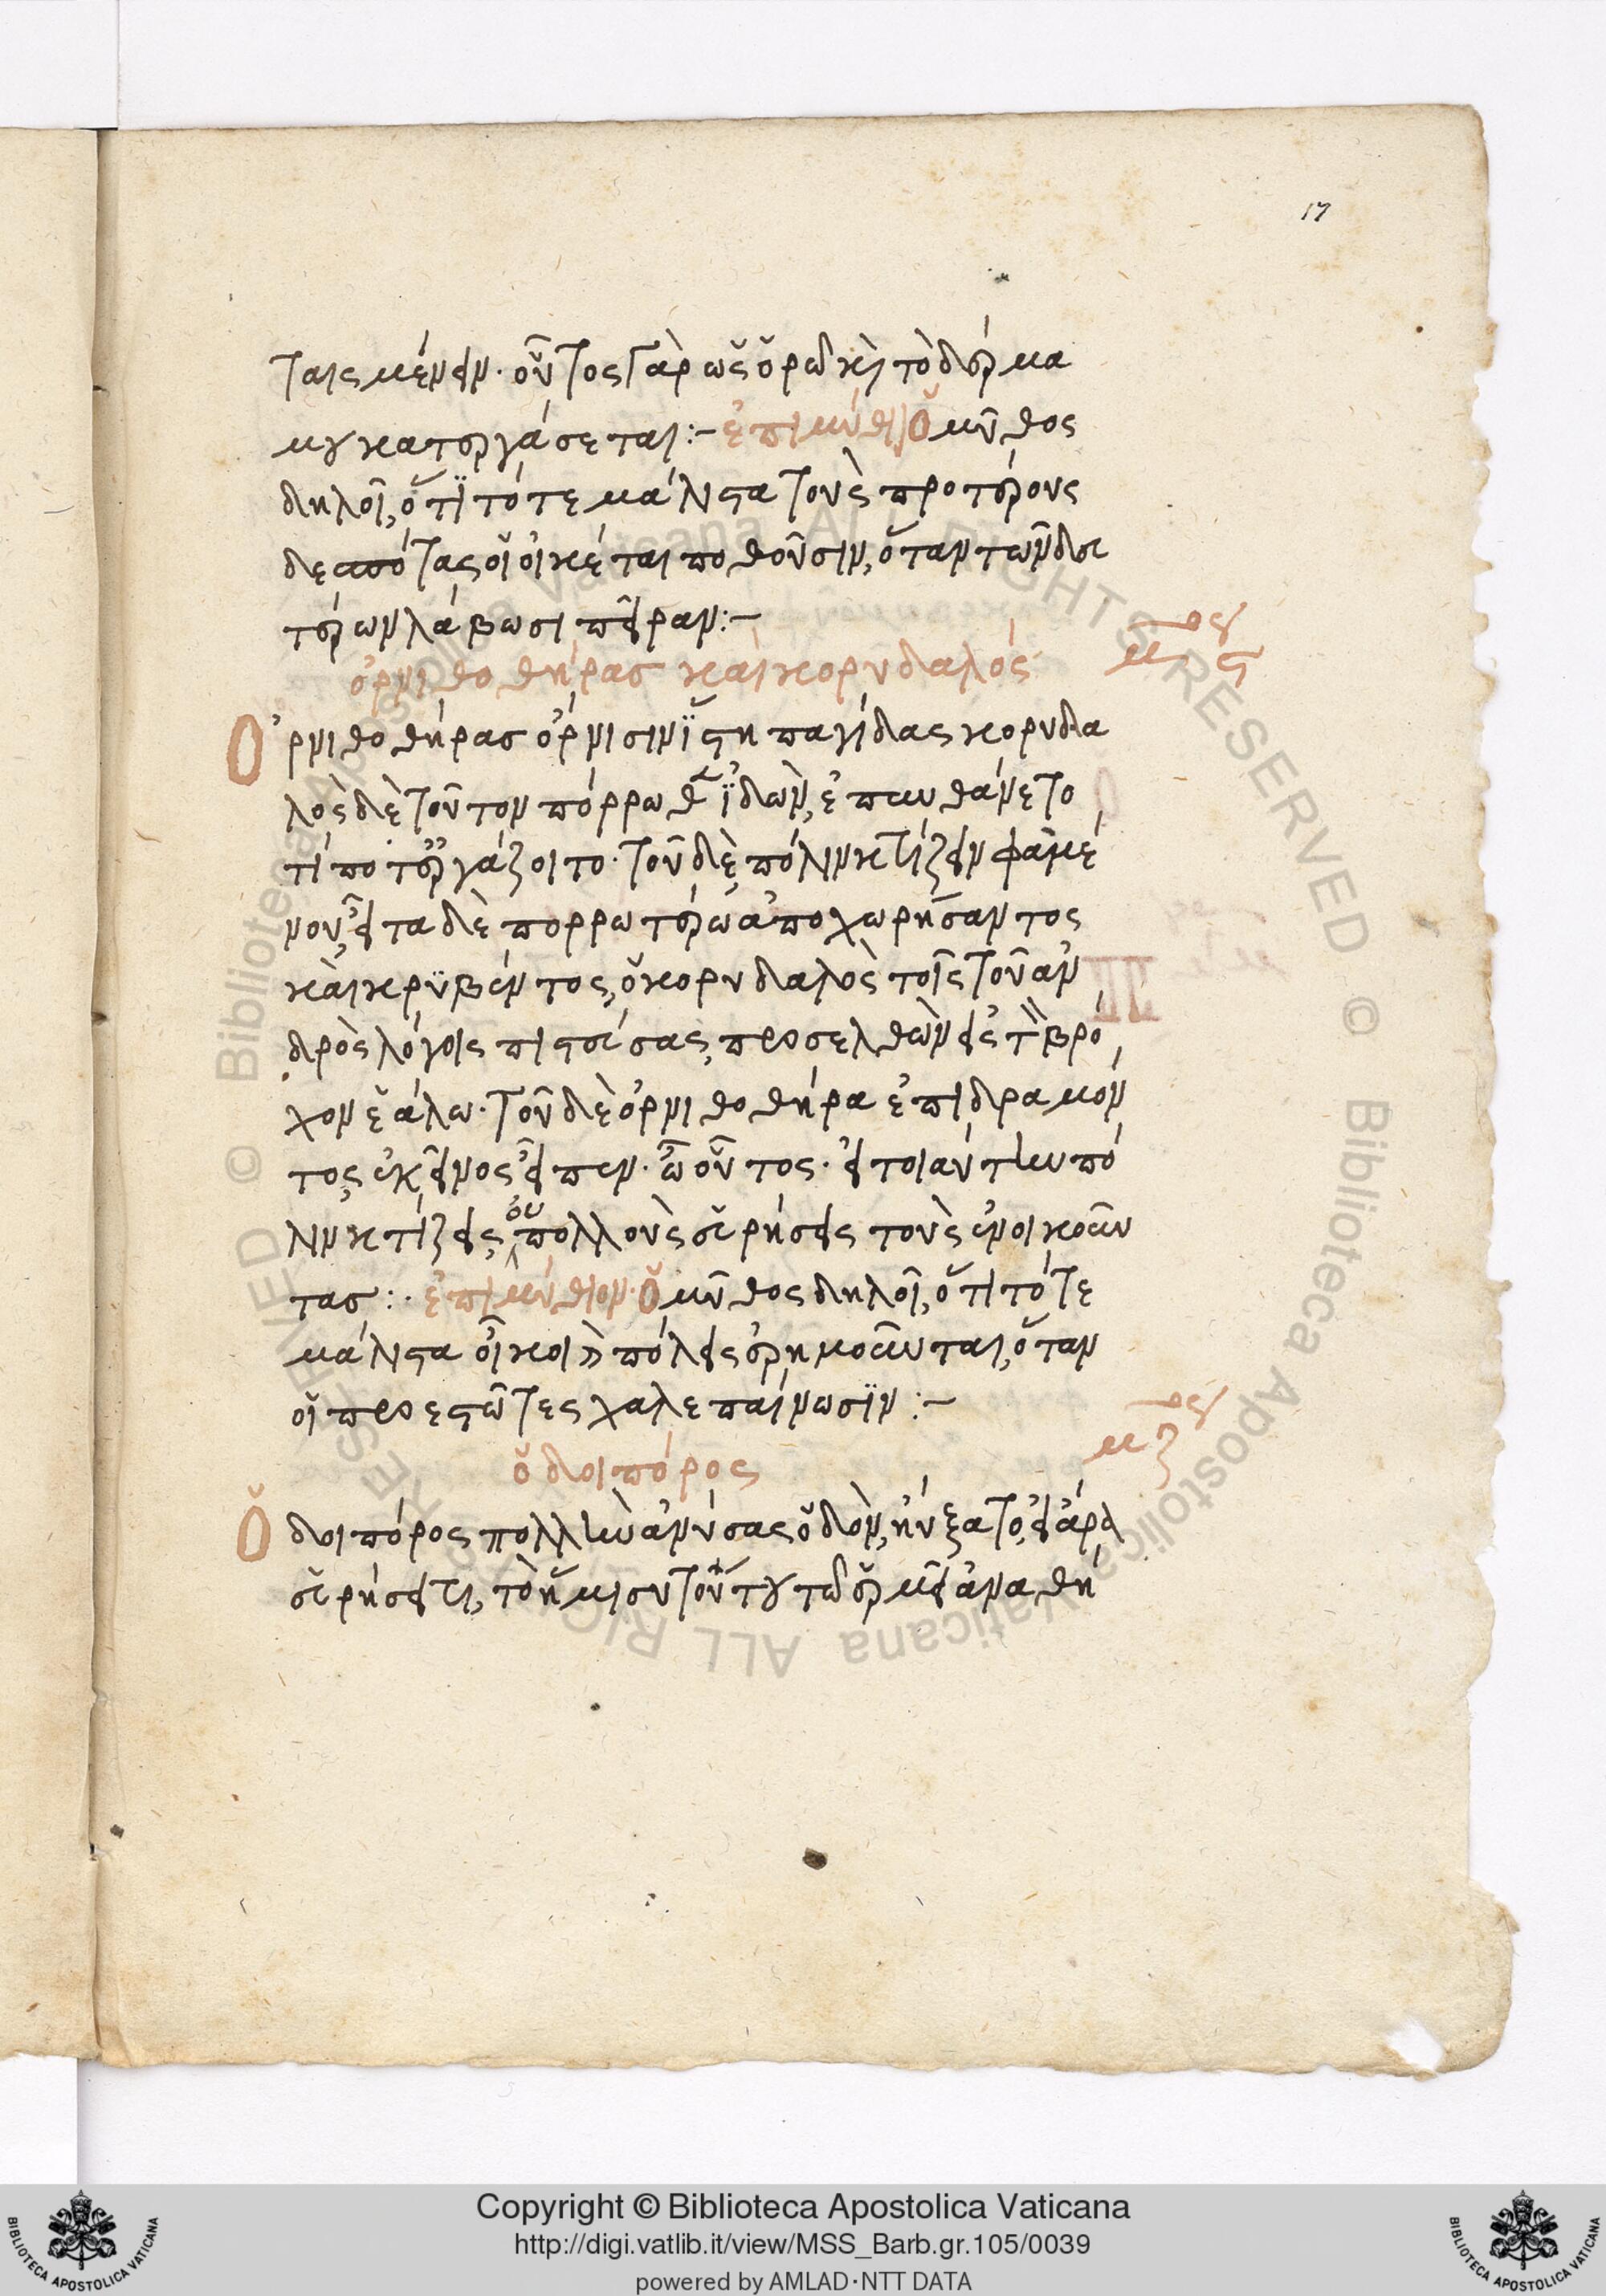 17
ταις μένειν· οὗτος γὰρ ὡς ὁρῶ καὶ τὸ δέρμα
μου κατεργάσεται :- ἐπιμύθιον Ὁ μῦθος
δηλοῖ, ὅτι τότε μάλιστα τοὺς προτέρους
δεσπότας οἱ οἰκέται ποθοῦσιν, ὅταν τῶν δευ
τέρων λάβωσι πεῖραν :-
μῦθος μς
ὀρνιθοθήρας καὶ κορυδαλός
Ὀρνιθοθήρας ὄρνισιν ἵστη παγίδας κορυδα
λὸς δὲ τοῦτον πόρρωθεν ἰδὼν, ἐπυνθάνετο
τί ποτ' ἐργάζοιτο· τοῦ δὲ πόλιν κτίζειν φαμέ
νου, εἶτα δὲ πορρωτέρω ἀποχωρήσαντος
καὶ κρυβέντος, ὁ κορυδαλὸς τοῖς τοῦ ἀν
δρὸς λόγοις πιστεύσας, προσελθὼν εἰς τὴν βρό
χον ἑάλω· τοῦ δὲ ὀρνιθοθήρα ἐπιδραμόν
τος, ἐκεῖνος εἶπεν· ὦ οὗτος· εἰ τοιαύτην πό
λιν κτίζεις, οὐ πολλοὺς εὑρήσεις τοὺς ἐνοικοῦν
τας :· ἐπιμύθιον· Ὁ μῦθος δηλοῖ, ὅτι τότε
μάλιστα οἶκοι καὶ πόλεις ἐρημοῦνται, ὅταν
οἱ προεστῶτες χαλεπαίνωσιν :-
μῦθος μζ
ὁδοιπόρος
Ὁδοιπόρος πολλὴν ἀνύσας ὁδὸν, ηὔξατο, εἰ ἄρα
εὑρήσει τι, τὸ ἥμισυ τούτου τῷ ἑρμεῖ ἀναθή
Copyright © Biblioteca Apostolica Vaticana
http://digi.vatlib.it/view/MSS_Barb.gr.105/0039
powered by AMLAD·NTT DATA
BIBLIOTECA APOSTOLICA VATICANA
BIBLIOTECA APOSTOLICA VATICANA
© Biblioteca Apostolica Vaticana ALL RIGHTS RESERVED © Biblioteca Apostolica Vaticana ALL RIGHTS RESERVED